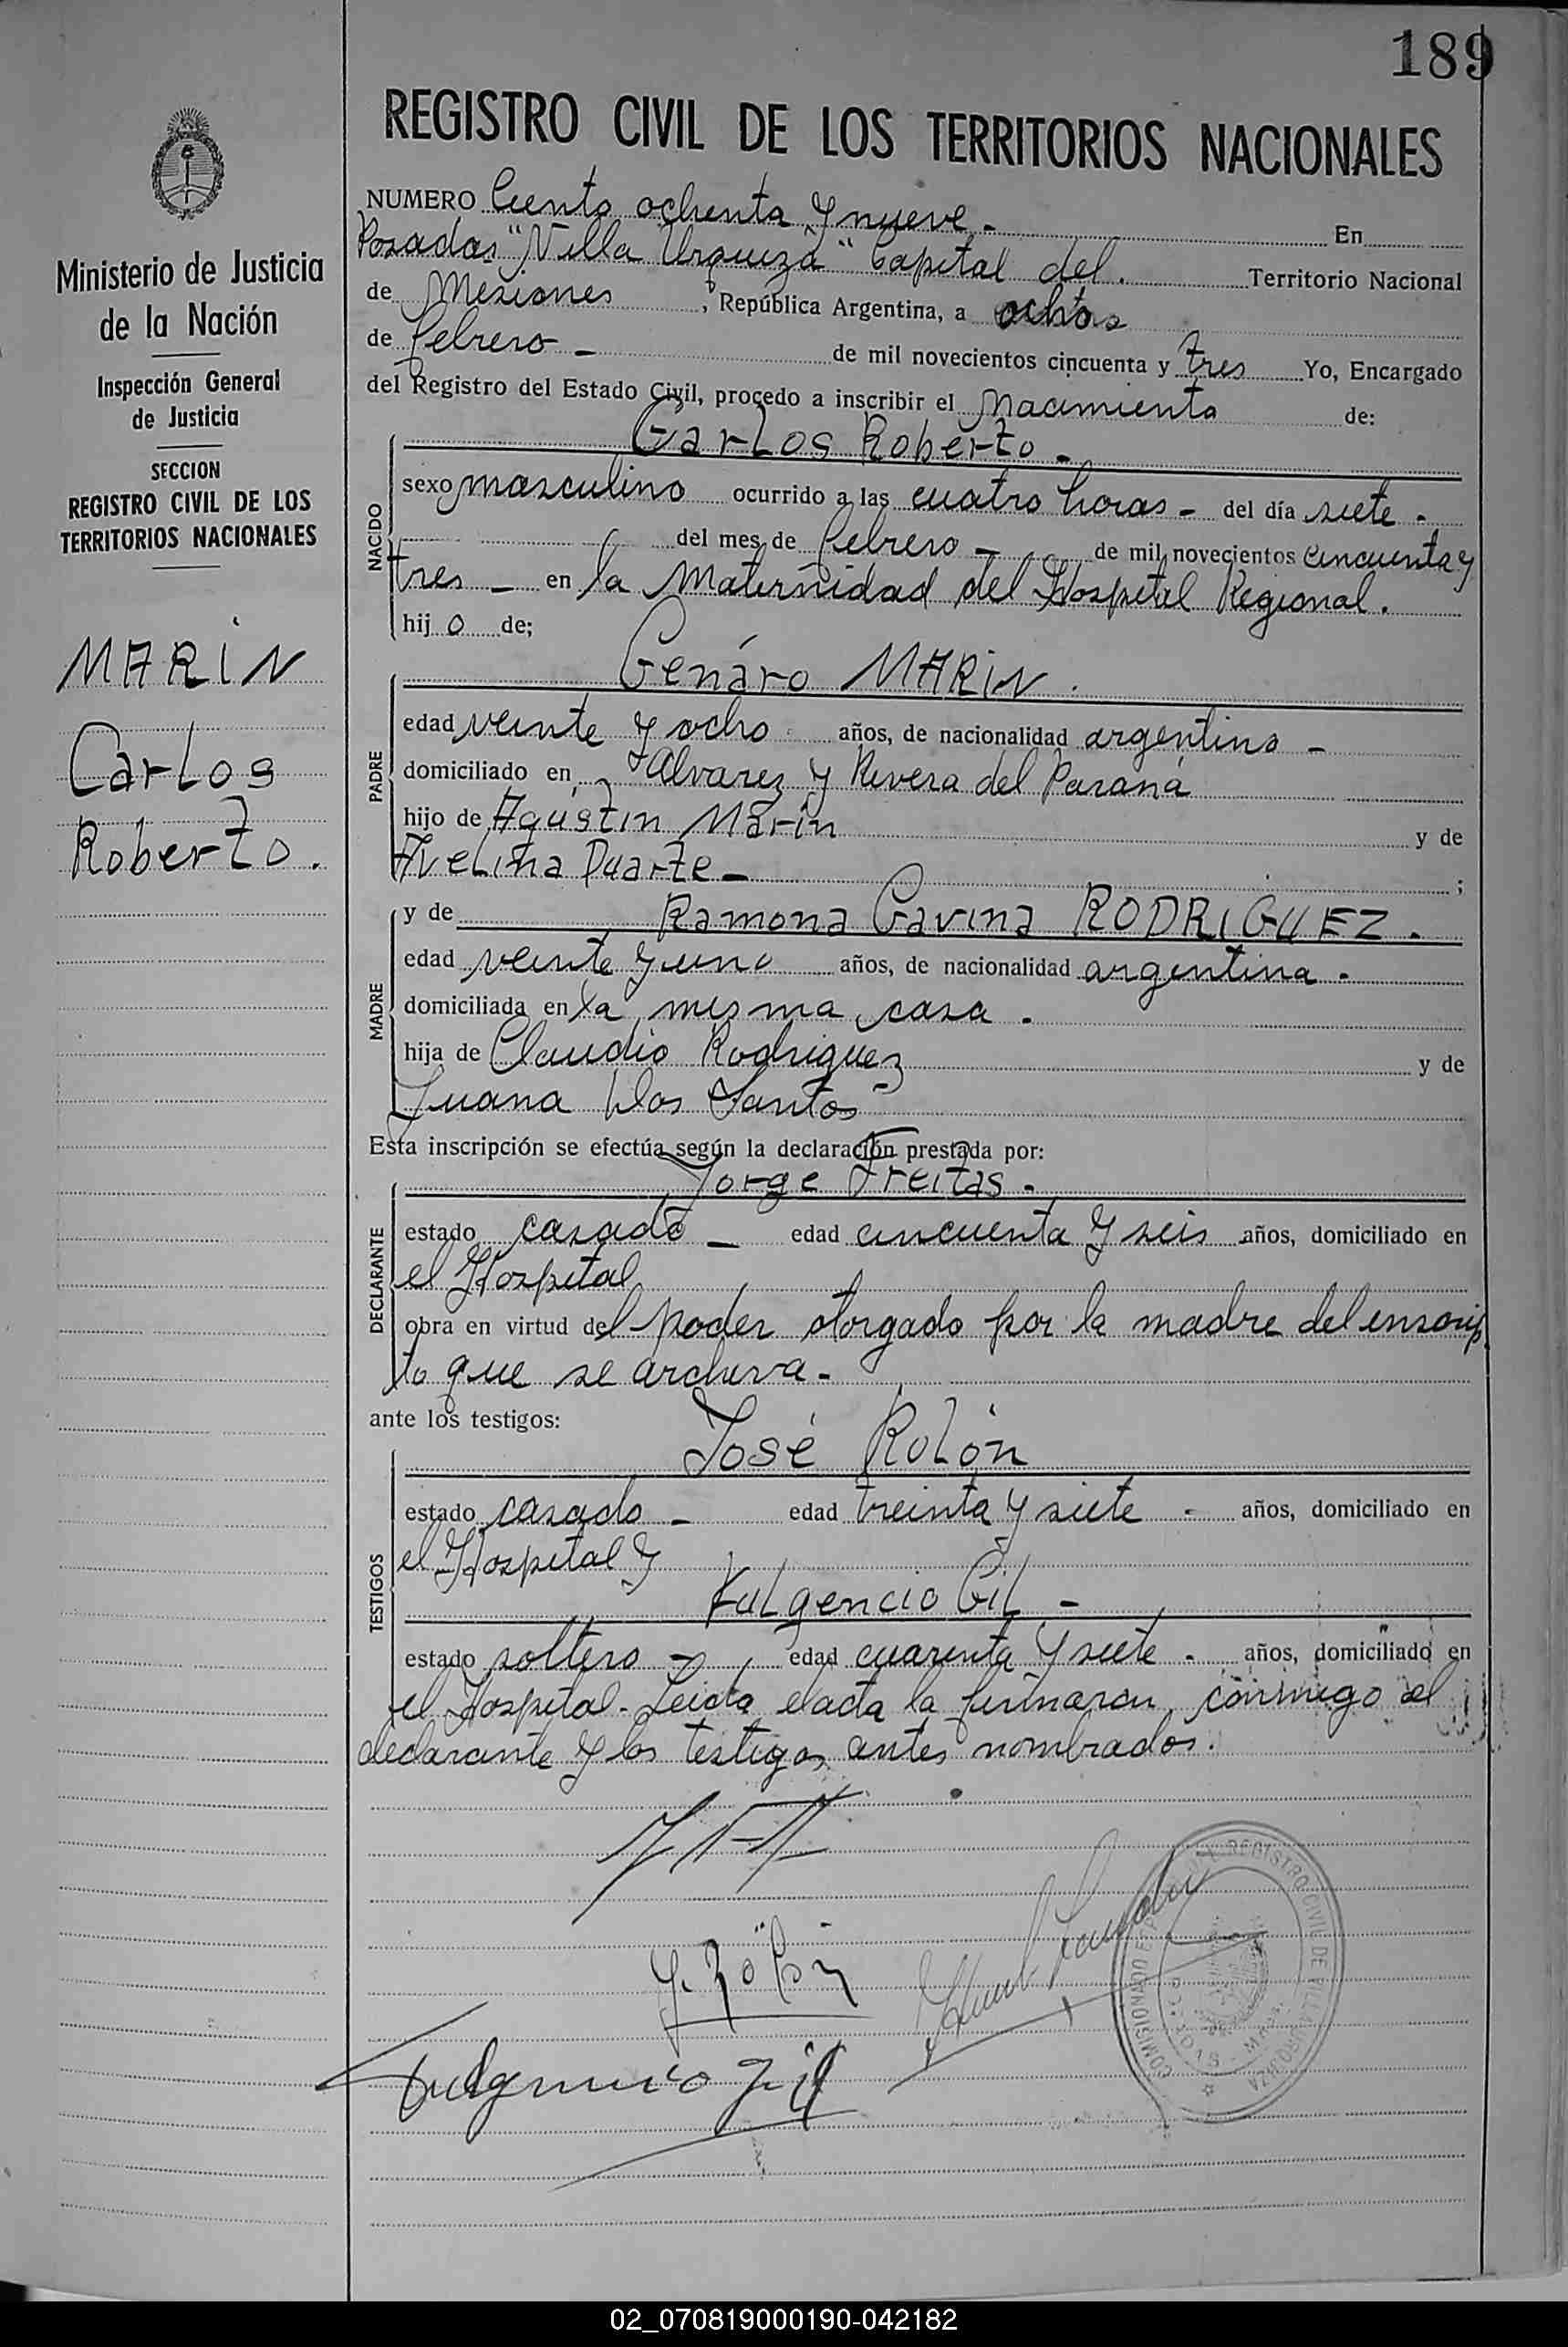 189
REGISTRO CIVIL DE LOS TERRITORIOS NACIONALES
Ministerio de Justicia
de la Nación
Inspección General
de Justicia
SECCION
REGISTRO CIVIL DE LOS
TERRITORIOS NACIONALES
MARIN
Carlos
Roberto.
NUMERO Ciento ochenta y nueve.- En
Posadas "Villa Urquiza" Capital del. Territorio Nacional
de Misiones, República Argentina, a ocho
de febrero - de mil novecientos cincuenta y tres Yo, Encargado
del Registro del Estado Civil, procedo a inscribir el Nacimiento de:
NACIDO
Carlos Roberto.-
sexo masculino ocurrido a las cuatro horas - del día siete -
del mes de febrero - de mil novecientos cincuenta y
tres - en la Maternidad del Hospital Regional.
hijo de;
PADRE
Genáro MARIN.
edad veinte y ocho años, de nacionalidad argentino -
domiciliado en Alvarez y Rivera del Paraná
hijo de Agustín Marín y de
Avelina Duarte - ;
MADRE
y de Ramona Gavina RODRIGUEZ.
edad veinte y uno años, de nacionalidad argentina -
domiciliada en la misma casa.
hija de Claudio Rodriguez y de
Juana Dos Santos
Esta inscripción se efectúa según la declaración prestada por:
DECLARANTE
Jorge Freitas.-
estado casado - edad cincuenta y seis años, domiciliado en
el Hospital
obra en virtud del poder otorgado por la madre del inscrip
to que se archiva.-
ante los testigos:
TESTIGOS
José Rolón
estado casado - edad treinta y siete - años, domiciliado en
el Hospital y
Fulgencio Gil -
estado soltero - edad cuarenta y siete - años, domiciliado en
el Hospital. Leida el acta la firmaron conmigo el
declarante y los testigos antes nombrados.
J. Rolón
Fulgencio Gil
REGISTRO CIVIL DE VILLA URQUIZA
02_070819000190-042182